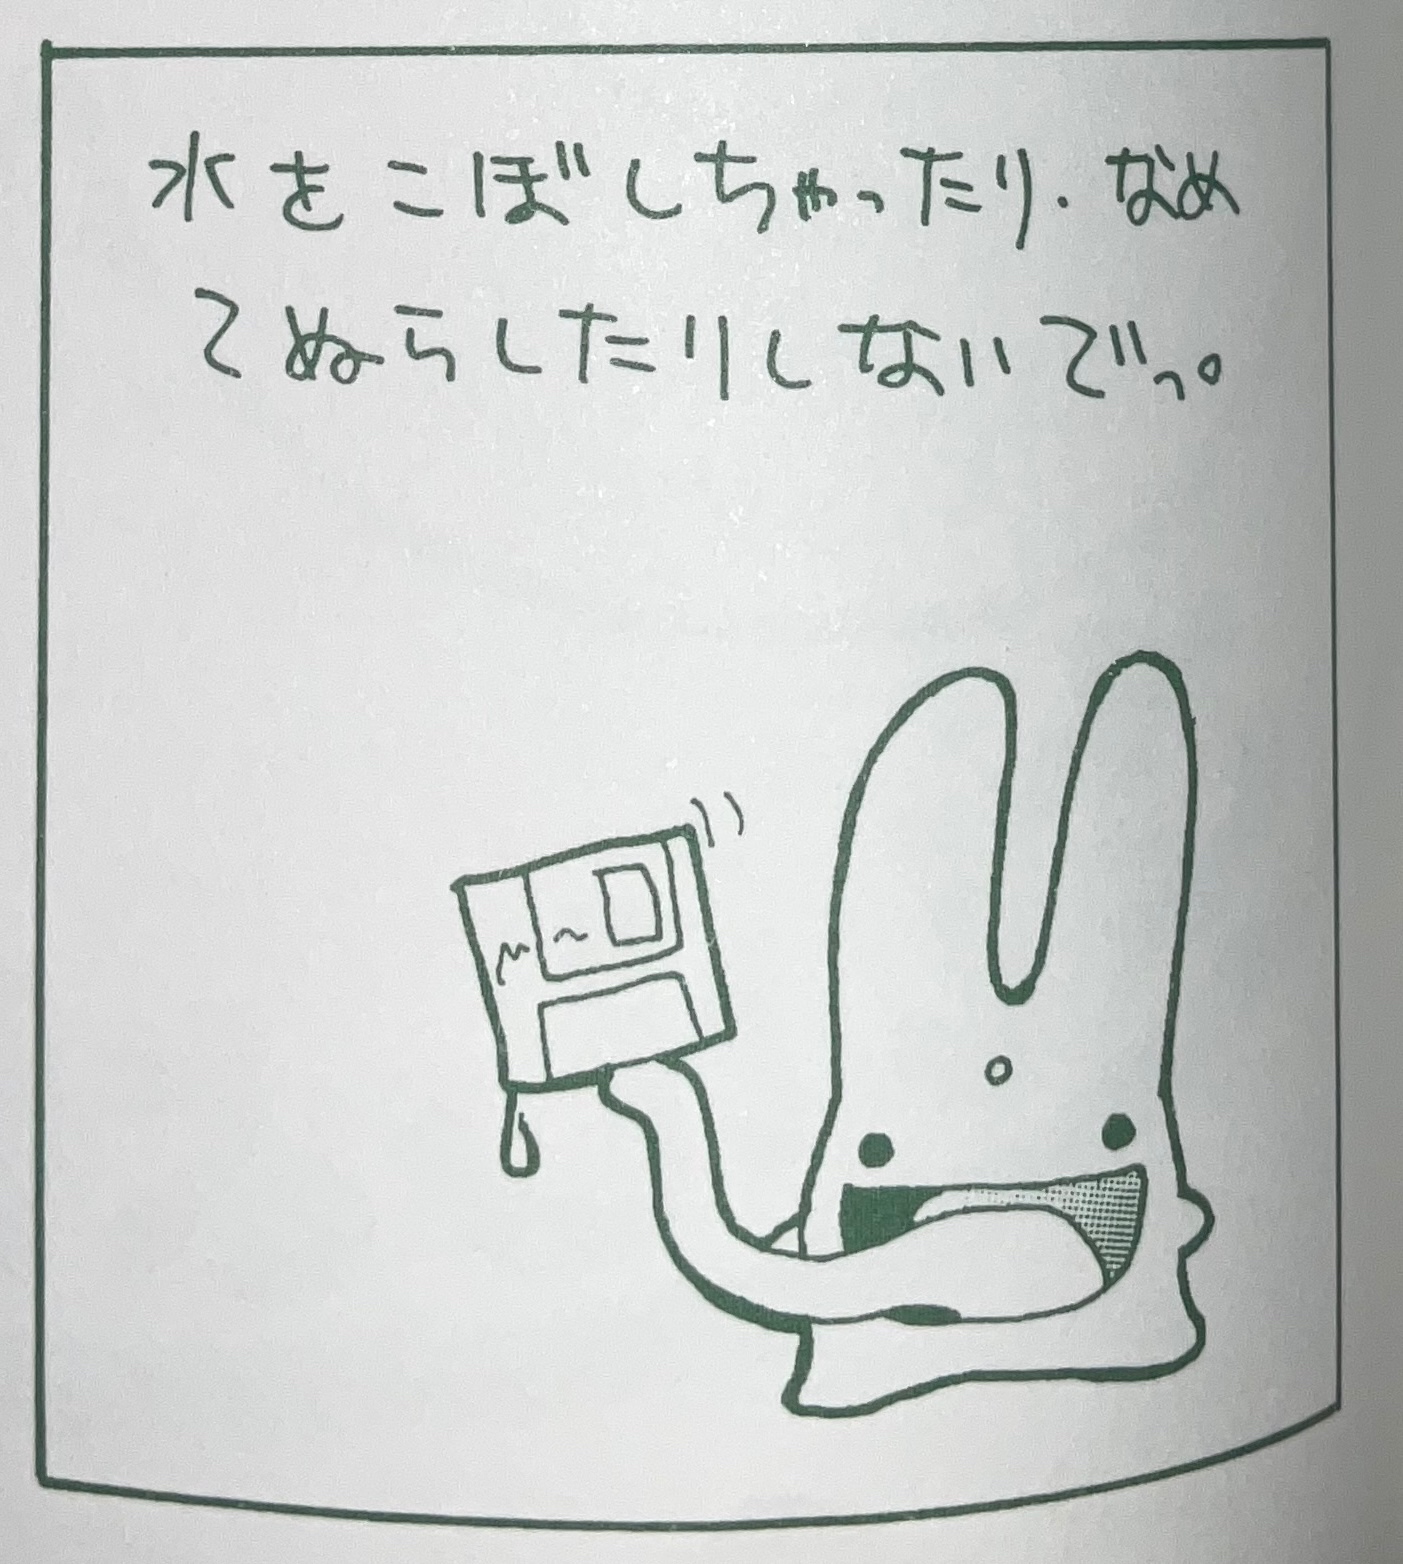 水をこぼしちゃったり.なめ
てぬらしたりしないでっ。